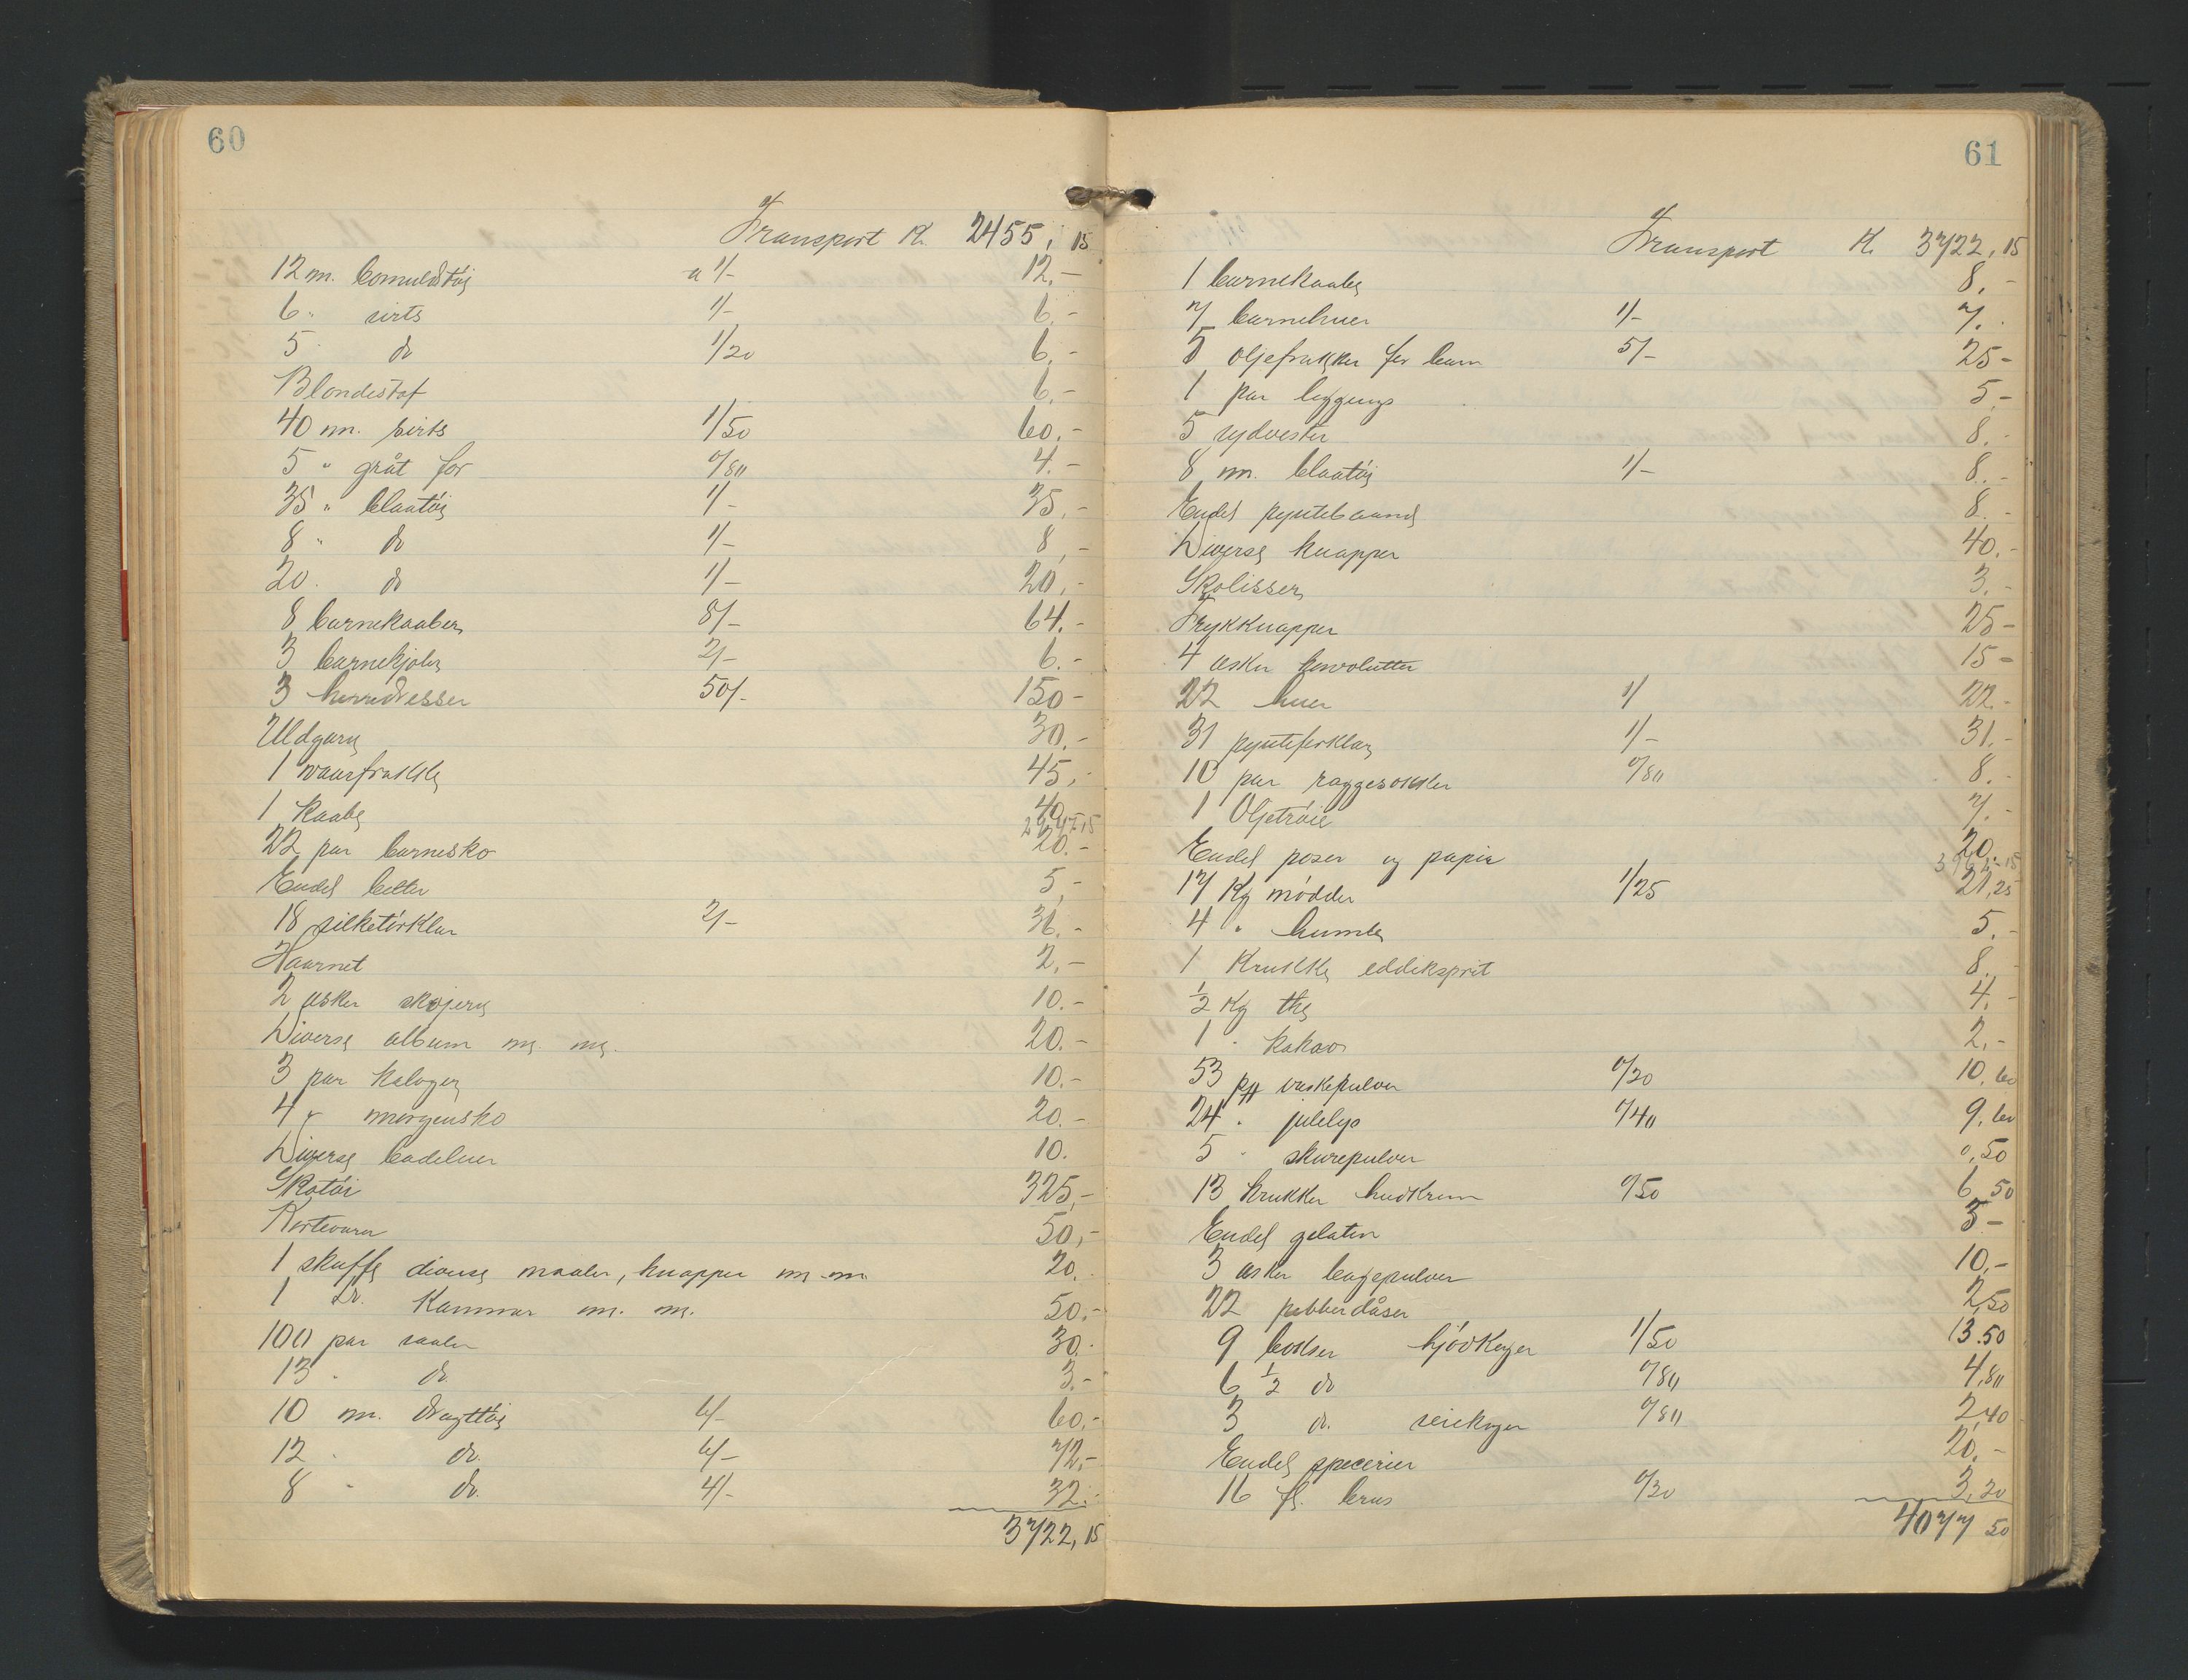 60
Transport Kr. 2455,15
12 m. bomuldstøi a 1/- 12.-
6 " sirts 1/- 6.-
5 " do 1/20 6.-
Blondestof 6.-
40 m. sirts 1/50 60.-
5 " gråt for 0/80 4.-
35 " blaatøi 1/- 35.-
8 " do 1/- 8.-
20 " do 1/- 20.-
8 barnekaaber 8/- 64.-
3 barnekjoler 2/- 6.-
3 herredresser 50/- 150.-
Uldgarn 30.-
1 vaarfrakke 45.-
1 kaabe 40.-
2947.15
22 par barnesko 20.-
Endel belter 5.-
18 silketørklær 2/- 36.-
Haarnet 2.-
2 æsker skojern 10.-
Diverse album m. m. 20.-
3 par kalosjer 10.-
4 " morgensko 20.-
Diverse badeluer 10.
Skotøi 325.-
Kortevarer 50.-
1 skuffe diverse naaler, knapper m. m. 20.
1 do. Kammer m. m. 50.-
100 par saaler 30.-
13 " do 3.-
10 m. dragttøi 6/- 60.-
12 " do. 6/- 72.-
8 " do. 4/- 32.-
3722,15
61
Transport Kr. 3722,15
1 barnekaabe 8.-
7 barnehuer 1/- 7.-
5 oljefrakker for barn 5/- 25-
1 par leggings 5.-
5 sydvester 8.-
8 m. blaatøi 1/- 8.-
Endel pyntebaand 8.-
Diverse knapper 40.-
Skolisser 3.-
Trykknapper 25-
4 æsker konvolutter 15-
22 huer 1/ 22.-
31 pynteforklær 1/- 31.-
10 par raggesokker 0/80 8.-
1 Oljetrøie 7.-
Endel poser og papir 20.
3962.15
17 Kg nødder 1/25 21,25
4 " humle 5.-
1 Krukke eddiksprit 8.-
1/2 Kg the 4.-
1 " kakao 2.-
53 pk vaskepulver 0/20 10,60
24 " julelys 0/40 9,60
5 " skurepulver 0,50
13 krukker hudkrem 0/50 6,50
Endel gelatin 5-
3 æsker bagepulver 10.-
22 pebberdåser 2,50
9 bokser kjødkager 1/50 13.50
6 1/2 do 0/80 4,80
3 do. seiekager 0/80 2,40
Endel specerier 20.-
16 fl. brus 0/20 3,20
4077 50